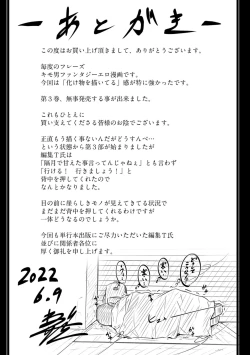 ーあとがきー
この度はお買い上げ頂きまして、ありがとうございます。
毎度のフレーズ
キモ男ファンタジーエロ漫画です。
今回は「化け物を描いてる」感が特に強かったです。
第3巻、無事発売する事が出来ました。
これもひとえに
買い支えてくださる皆様のお陰でございます。
正直もう描く事ないんだがどうすんべ…
という状態から第3部が始まりましたが
編集T氏は
「隔月で甘えた事言ってんじゃねぇ」とも言わず
「行ける! 行きましょう!」と
背中を押してくれたので
なんとかなりました。
目の前に崖らしきモノが見えてきてる状況で
まだまだ背中を押してくれるわけですが
一体どうなるのでしょうか。
今回も単行本出版にご尽力いただいた編集T氏
並びに関係者各位に
厚く御礼を申し上げます。
2022
6.9